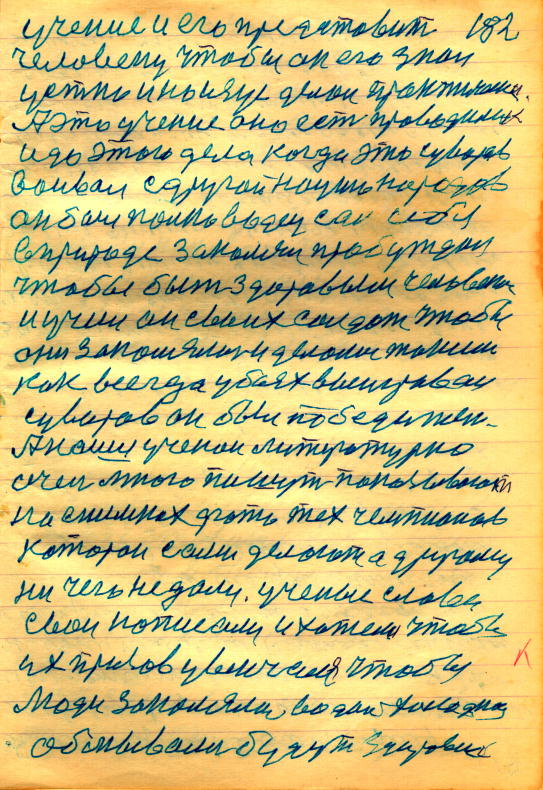 учение и его предетовит 182
человеку чтобы он его знал
устно и делал практически.
А это учение оно ест проводился
и до этого дела когда это суворов
воивал с другой народов
он был полководец сам себя
в природе заколяли пробуждал
чтобы быт здоровым человеком
и учил он своих солдат чтобы
они закалялис и делалис такими
как всегда у боях выигравал
суворов он был победителем.
А наши ученаи литературно
очен много пишут показывают
на снимках фото тех чемпионов
каторои сами делоют а другому
ни чего не дали. ученые слова
свои нописали и хотели чтобы
их призов увенчался чтобы
люди закалялис водой холодной
обмывалис будут здоровые